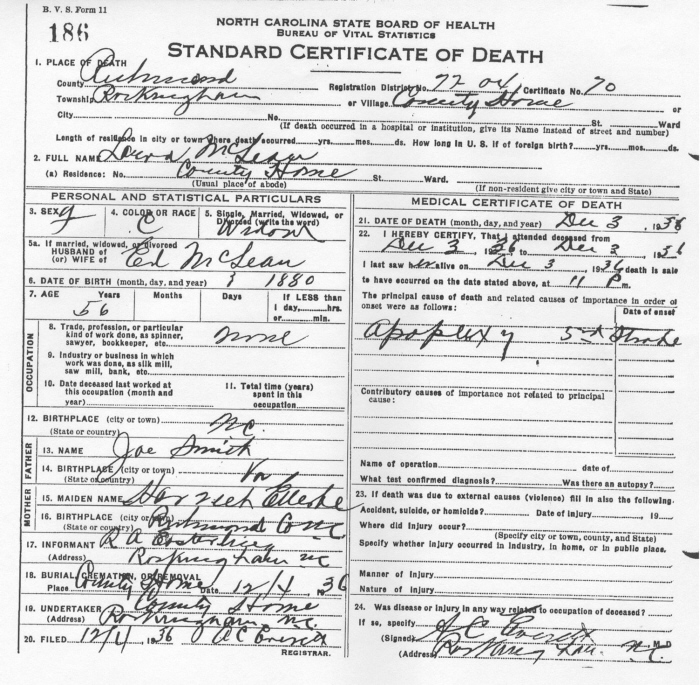 B. V. S. Form 11
186
NORTH CAROLINA STATE BOARD OF HEALTH
BUREAU OF VITAL STATISTICS
STANDARD CERTIFICATE OF DEATH
1. PLACE OF DEATH
County Richmond Registration District No. 77 04 Certificate No. 70
Township Rockingham or Village County Home
City No. St. Ward
(If death occurred in a hospital or institution, give its Name instead of street and number)
Length of residence in city or town where death occurred yrs. mos. ds. How long in U. S. if of foreign birth? yrs. mos. ds.
2. FULL NAME Laura McLean
(a) Residence: No. County Home St. Ward.
(Usual place of abode) (If non-resident give city or town and State)
PERSONAL AND STATISTICAL PARTICULARS
3. SEX
4. COLOR OR RACE C
5. Single, Married, Widowed, or Divorced (write the word) Widow
5a. If married, widowed, or divorced
HUSBAND of
(or) WIFE of Ed McLean
6. DATE OF BIRTH (month, day, and year) 1880
7. AGE Years Months Days If LESS than
56 1 day, hrs.
or min.
OCCUPATION
8. Trade, profession, or particular
kind of work done, as spinner,
sawyer, bookkeeper, etc. none
9. Industry or business in which
work was done, as silk mill,
saw mill, bank, etc.
10. Date deceased last worked at
this occupation (month and
year)
11. Total time (years)
spent in this
occupation
12. BIRTHPLACE (city or town)
(State or country) NC
FATHER
13. NAME Joe Smith
14. BIRTHPLACE (city or town)
(State or country) Va
MOTHER
15. MAIDEN NAME Harriett
16. BIRTHPLACE (city or town)
(State or country) Richmond Co NC
17. INFORMANT R A
(Address) Rockingham NC
18. BURIAL, CREMATION, OR REMOVAL
Place County Home Date 12/4 1936
19. UNDERTAKER County Home
(Address) Rockingham NC.
20. FILED 12/4 1936 A C Everett
REGISTRAR.
MEDICAL CERTIFICATE OF DEATH
21. DATE OF DEATH (month, day, and year) Dec 3, 1936
22. I HEREBY CERTIFY, That I attended deceased from
Dec 3 1936 to Dec 3, 1936
I last saw alive on Dec 3, 1936 death is said
to have occurred on the date stated above, at 11 P m.
The principal cause of death and related causes of importance in order of
onset were as follows: Date of onset
Apoplexy Stroke
Contributory causes of importance not related to principal
cause:
Name of operation date of
What test confirmed diagnosis? Was there an autopsy?
23. If death was due to external causes (violence) fill in also the following:
Accident, suicide, or homicide? Date of injury 19
Where did injury occur?
(Specify city or town, county, and State)
Specify whether injury occurred in industry, in home, or in public place.
Manner of injury
Nature of injury
24. Was disease or injury in any way related to occupation of deceased?
If so, specify
(Signed) A C Everett, M D
(Address) Rockingham NC